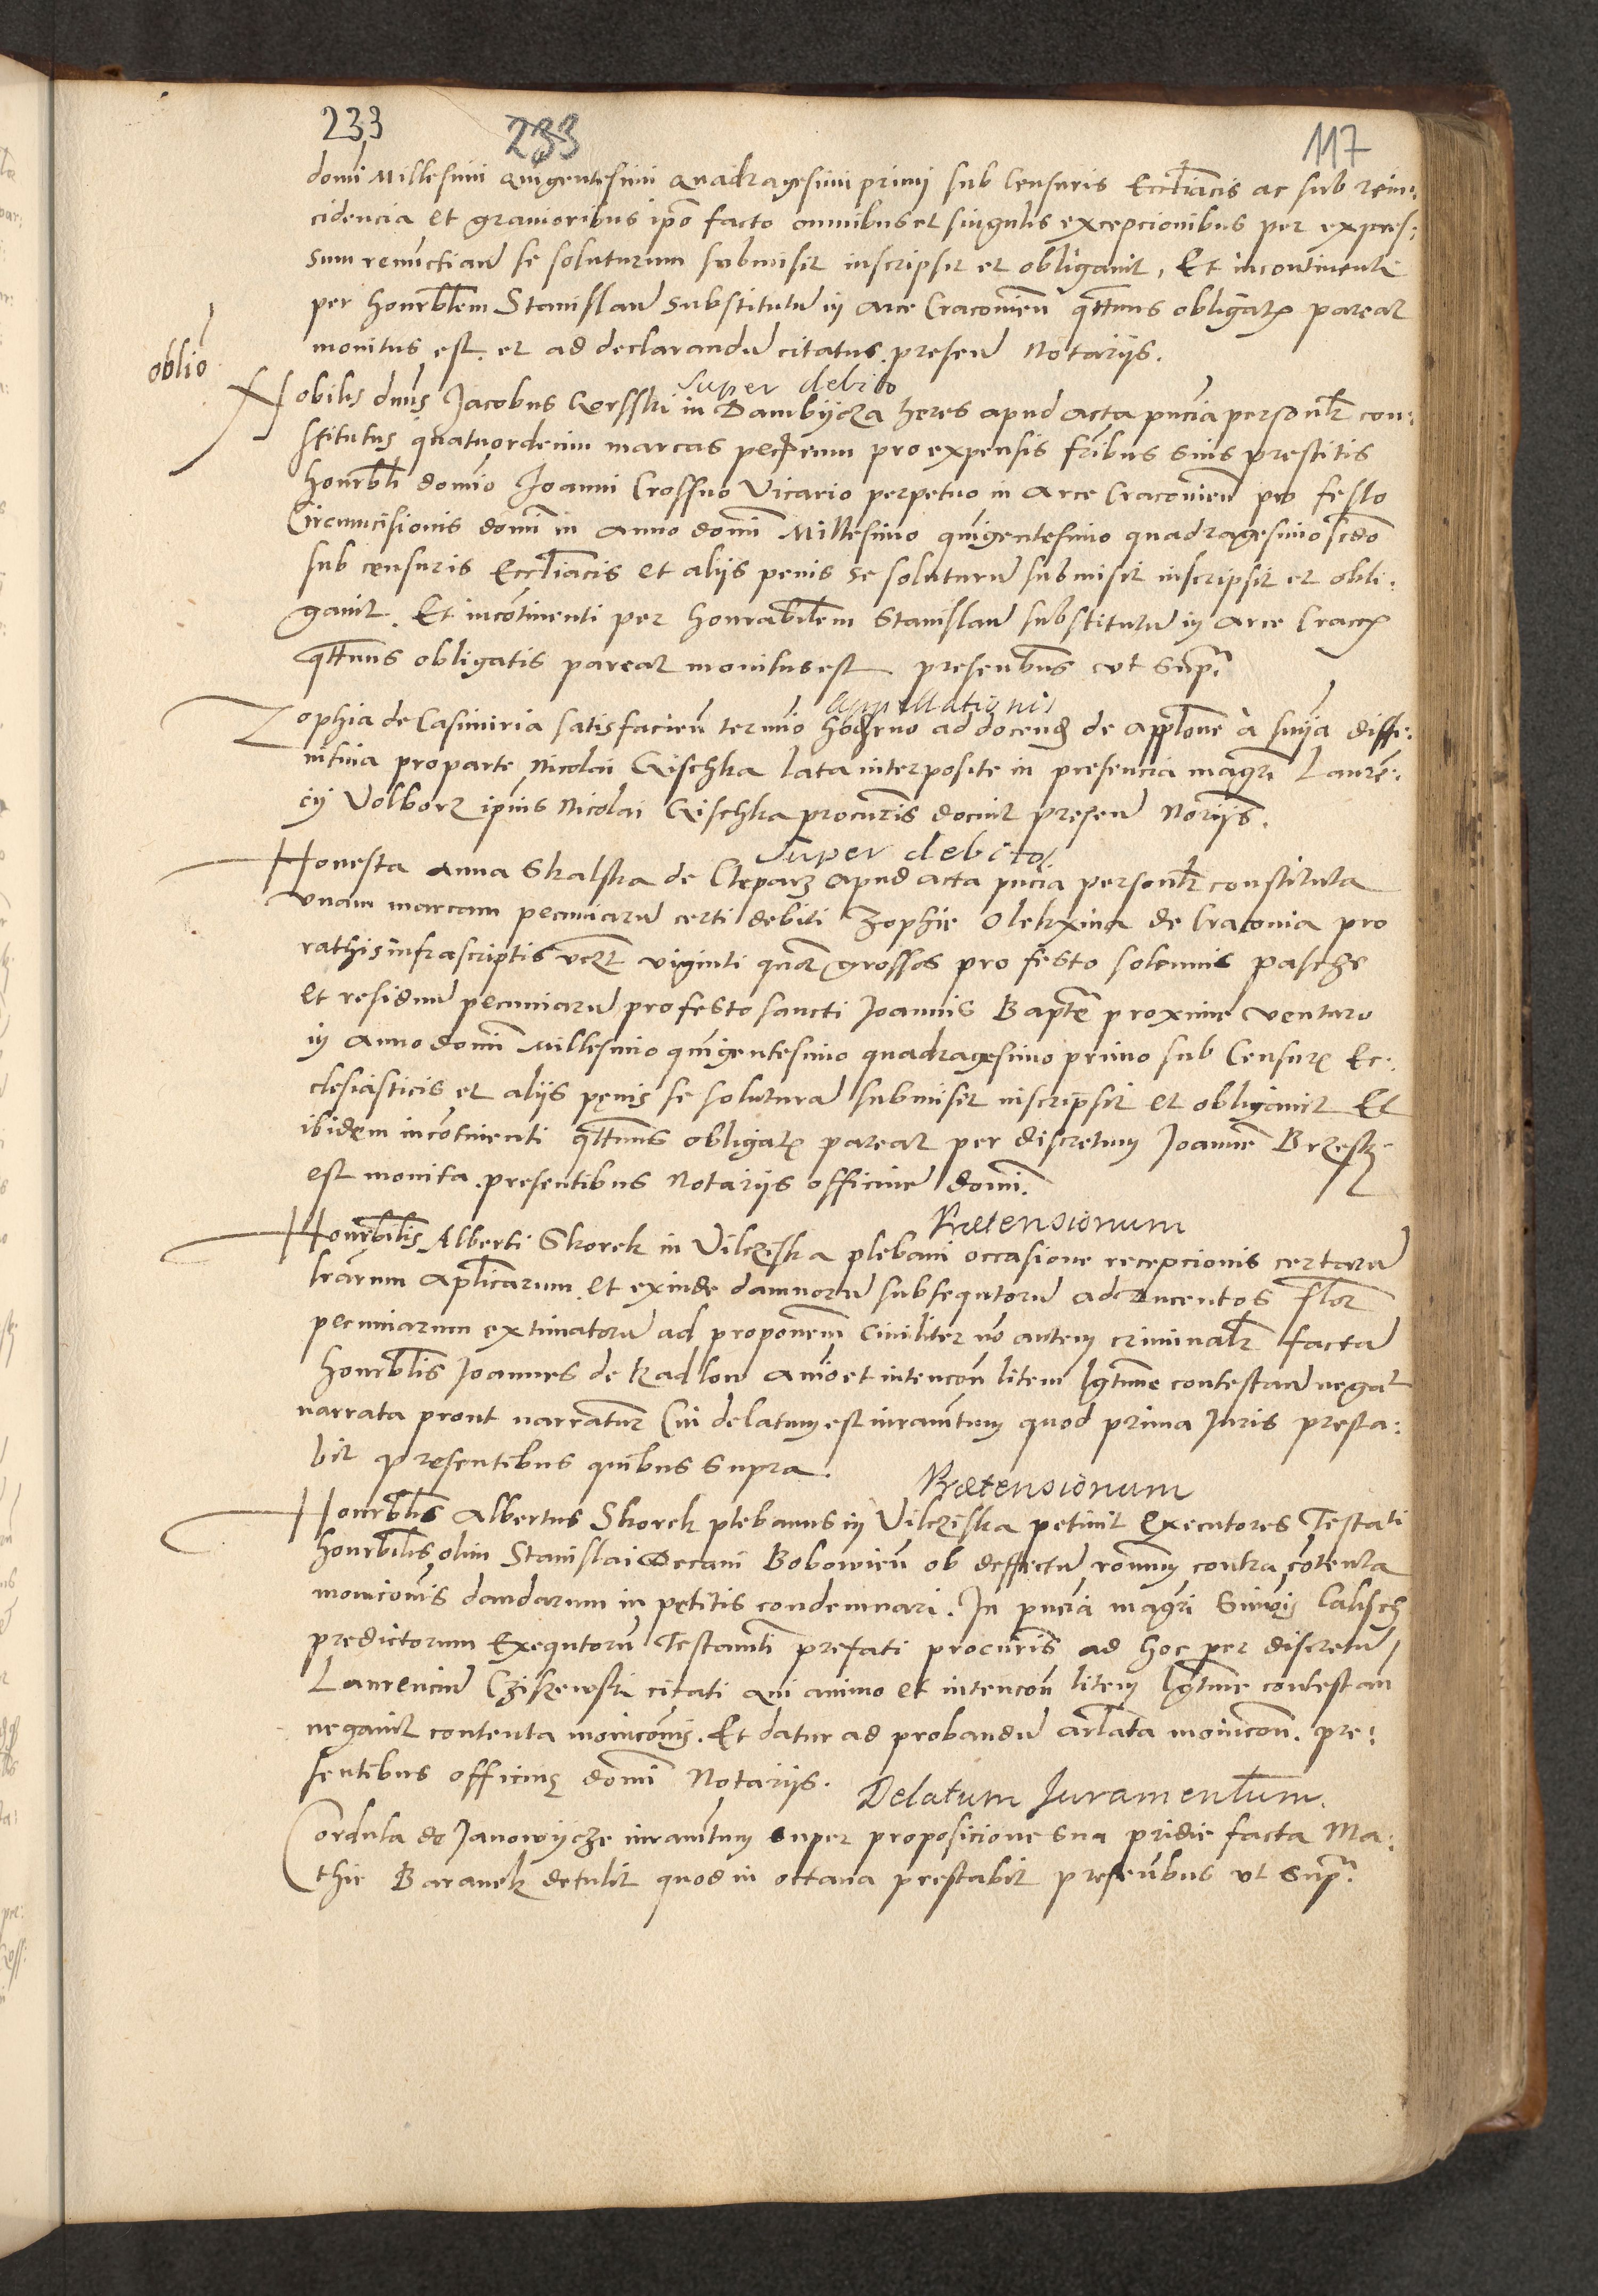 233 233 117
domi Millesimi quigentesimi quadragesimi primi sub Censuris Eccliacis ac sub rein:
cidencia et gravioribus ipo facto omnibus et singulis excepcionibus per expres:
sum renuctian se soluturum submisit inscripsit et obligavit, Et incontinenti
per honrblem Stanislau substitutu in Arce Cracovien qttnus obligatis pareat
monitus est. et ad declarandu citatus. presen Notariis.
oblio
super debito
Nobilis dnus Jacobus Gorsski in Dambijcza heres apud acta pncia personlr con:
stitutus quatuordecim marcas pecuniarum pro expensis fribus suis prestitis
honrbli domio Joanni Crossno Vicario perpetuo in Arce Cracovien pro festo
Circumcisionis domi in Anno domi Millesimo quigentesimo quadragesimo scdo
sub censuris Eccliacis et aliis penis se soluturu submisit inscripsit et obli:
gavit. Et incotinenti per honrabilem Stanislau substitutu in Arce Cracov
qttnus obligatis pareat monitus est presentibus ut supra
Appellationis
Zophia de Casimiria satisfacien termio hodierno ad docend de applone a snia diffi:
nitiva pro parte Nicolai Gischka lata interposite in presencia magri Lauren:
cii Volborz ipius Nicolai Gischka procuris docuit presen Noriis.
Super debito.
Honesta Anna Skalska de Cleparz apud acta pncia personlr constituta
unam marcam pecuniaru certi debiti Zophie Olekxina de Cracovia pro
rathis infrascriptis vczt viginti quor grossos pro festo solennis pasche
et residuu pecuniaru pro festo sancti Joannis Bapte proxime venturo
in Anno domi Millesimo quigentesimo quadragesimo primo sub Censuris Ec:
clesiasticis et aliis penis se solutura submisit inscripsit et obligavit Et
ibidem incotinenti qttnus obligatis pareat per discretum Joanne Brzesky
est monita. presentibus Notariis officine domi.
Praetensionum
Honrbilis Alberti Skorek in Vilcziska plebani occasione recepcionis certaru
lrarum Aplicarum. et exinde damnoru subsequtoru ad ducentos flor
pecuniarum extimatoru ad proponem Civiliter no autem criminalr facta
honrblis Joannes de Radlow Anio et intencon litem lgttme contestan negat
narrata prout narratur Cui delatum est iuramtum quod prima Juris presta:
bit presentibus quibus supra.
Praetensionum
Honrblis Albertus Skorek plebanus in Vilcziska petivit Executores Testati
honrbilis olim Stanislai Decani Bobowien ob deffectu ronum contra cotenta
monicionis dandarum in petitis condemnari. In pncia magri Simois Calisch
predictorum Exequtoru Testamti prefati procuris ad hoc per discretu
Laurenciu Cziszewski citati qui animo et intencon litem lgttme contestan
negavit contenta moniconis. Et datur ad probandu arlata monicon. pre:
sentibus officine domi Notariis.
Delatum Juramentum.
Cordula de Janowijcze iuramtum super proposicione sua pridie facta Ma:
thie Baranek detulit quod in octava prestabit presentibus ut supra